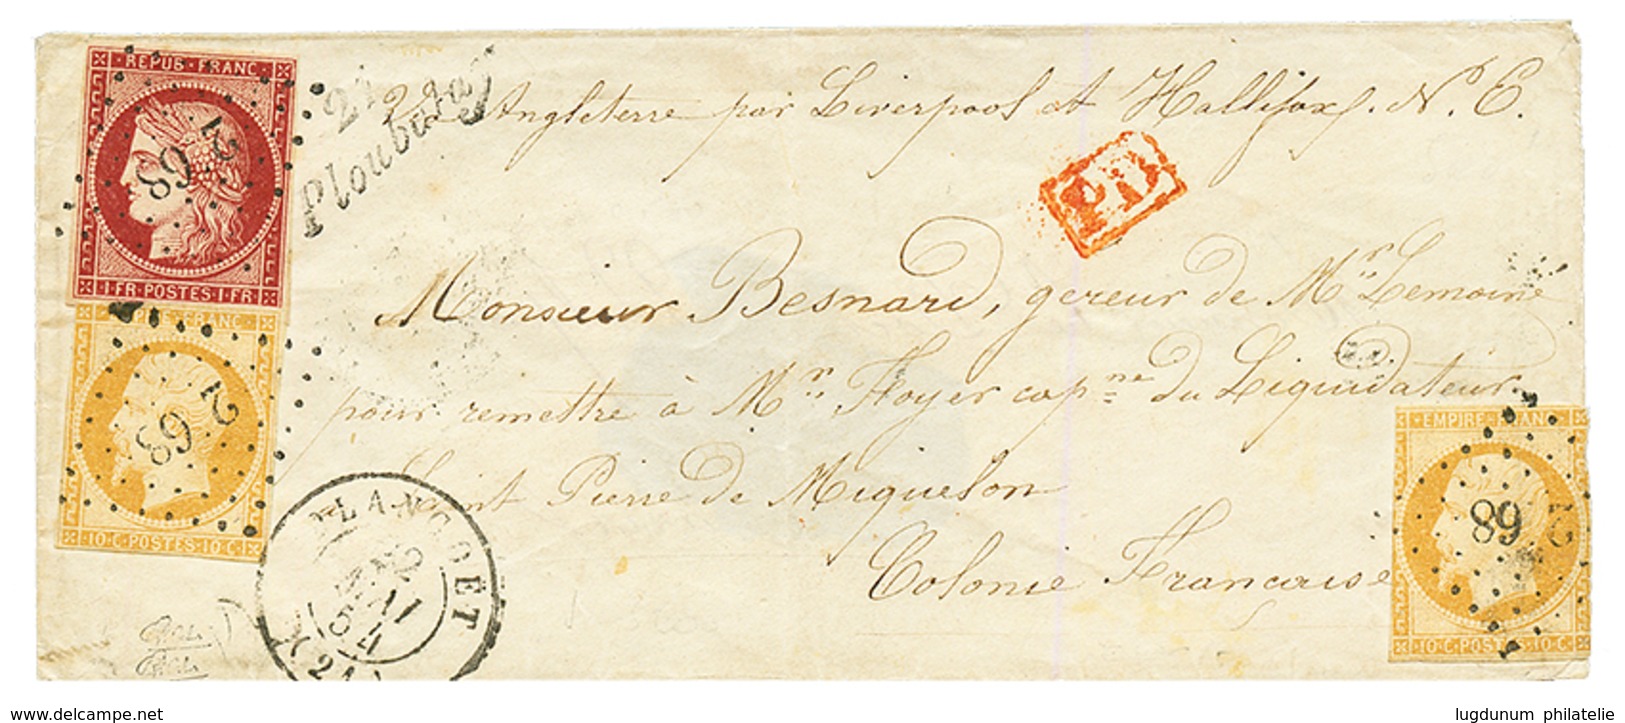 REPUB·FRANC
1·FR·POSTES·1·FR
2489
21
Ploubalay
Angleterre par Liverpool et Hallifax. N. E.
PD
Monsieur Besnard, gereur de Mr. Lemoine
pour remettre à Mr. Floyer capne du Liquidateur
Saint Pierre de Miquelon
Colonie Francaise
FRANC
10·C·POSTES·10·C
2489
PLANCOËT
2
MAI
54
(21)
EMPIRE·FRANC
10·C·POSTES·10·C
2489
lugdunum philatelie
www.delcampe.net